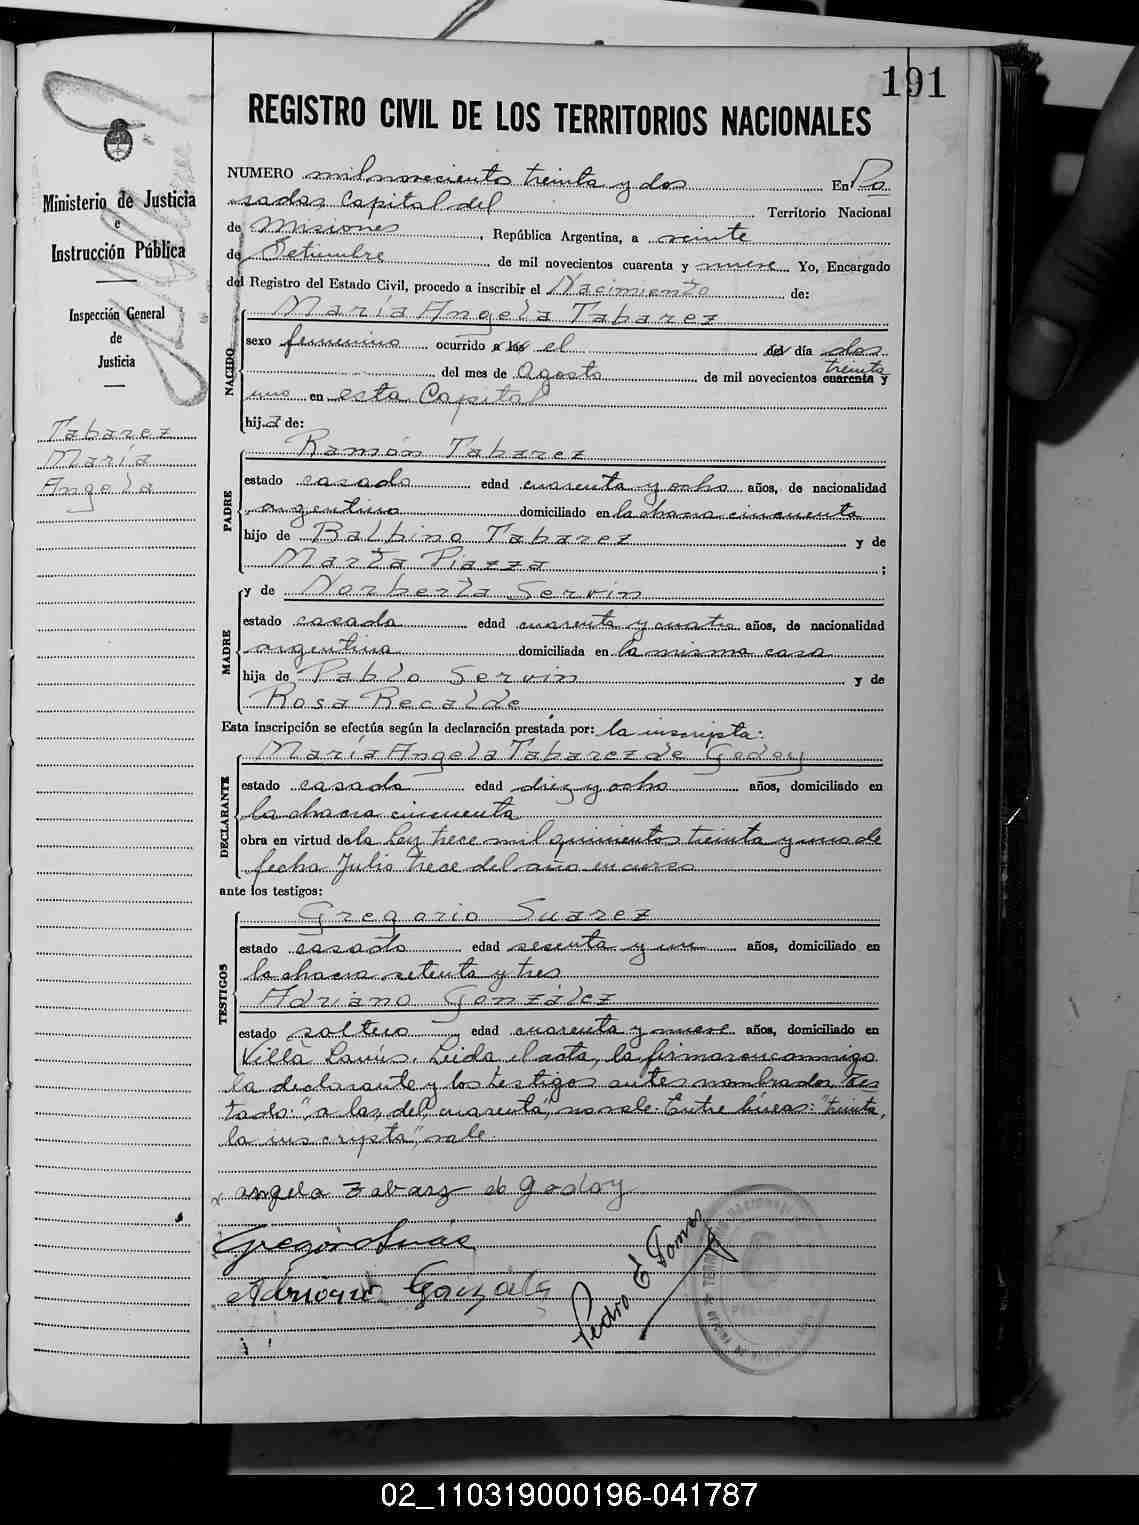 191
REGISTRO CIVIL DE LOS TERRITORIOS NACIONALES
Ministerio de Justicia
e
Instrucción Pública
Inspección General
de
Justicia
Tabarez
María
Angela
NUMERO mil novecientos treinta y dos En Po
sadas, Capital del Territorio Nacional
de Misiones, República Argentina, a veinte
de Setiembre de mil novecientos cuarenta y nueve Yo, Encargado
del Registro del Estado Civil, procedo a inscribir el Nacimiento de:
María Angela Tabarez
NACIDO
sexo femenino ocurrido a las el del día dos
treinta
del mes de Agosto de mil novecientos cuarenta y
uno en esta Capital
hija de:
Ramón Tabarez
PADRE
estado casado edad cuarenta y ocho años, de nacionalidad
argentino domiciliado en la chacra cincuenta
hijo de Balbino Tabarez y de
Marta Piazza ;
y de Norberta Servín
MADRE
estado casada edad cuarenta y cuatro años, de nacionalidad
argentina domiciliada en la misma casa
hija de Pablo Servín y de
Rosa Recalde
Esta inscripción se efectúa según la declaración prestada por: la inscripta:
María Angela Tabarez de Godoy
DECLARANTE
estado casada edad diez y ocho años, domiciliado en
la chacra cincuenta
obra en virtud de la Ley trece mil quinientos treinta y uno de
fecha Julio trece del año en curso
ante los testigos:
Gregorio Suarez
TESTIGOS
estado casado edad sesenta y un años, domiciliado en
la chacra setenta y tres
Adriano González
estado soltero edad cuarenta y nueve años, domiciliado en
Villa Lanús. Leida el acta, la firmaron conmigo
la declarante y los testigos antes nombrados. Tes
tado: "a las, del, cuarenta", no vale. Entre líneas: "treinta,
la inscripta", vale.
angela Tabarez de Godoy
Gregorio Suarez
Adriano Gonzalez
Pedro E.
02_110319000196-041787